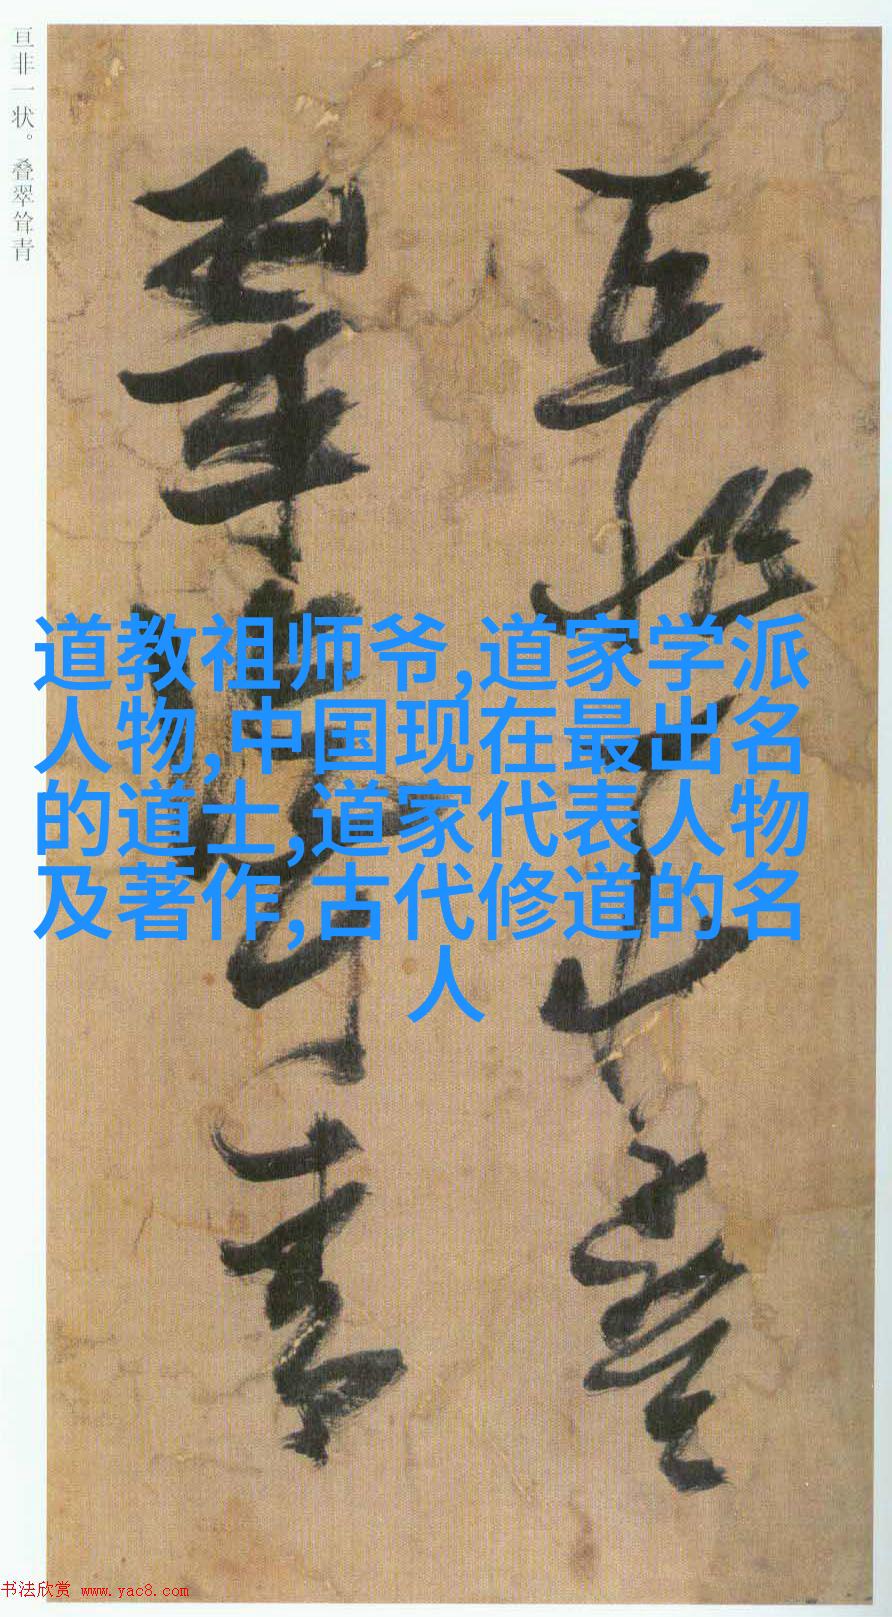 亘非一状。叠翠耸青
道教祖师爷,道家学派
人物,中国现在最出名
的道士,道家代表人物
及著作,古代修道的名
人
书法欣赏 www.yac8.com